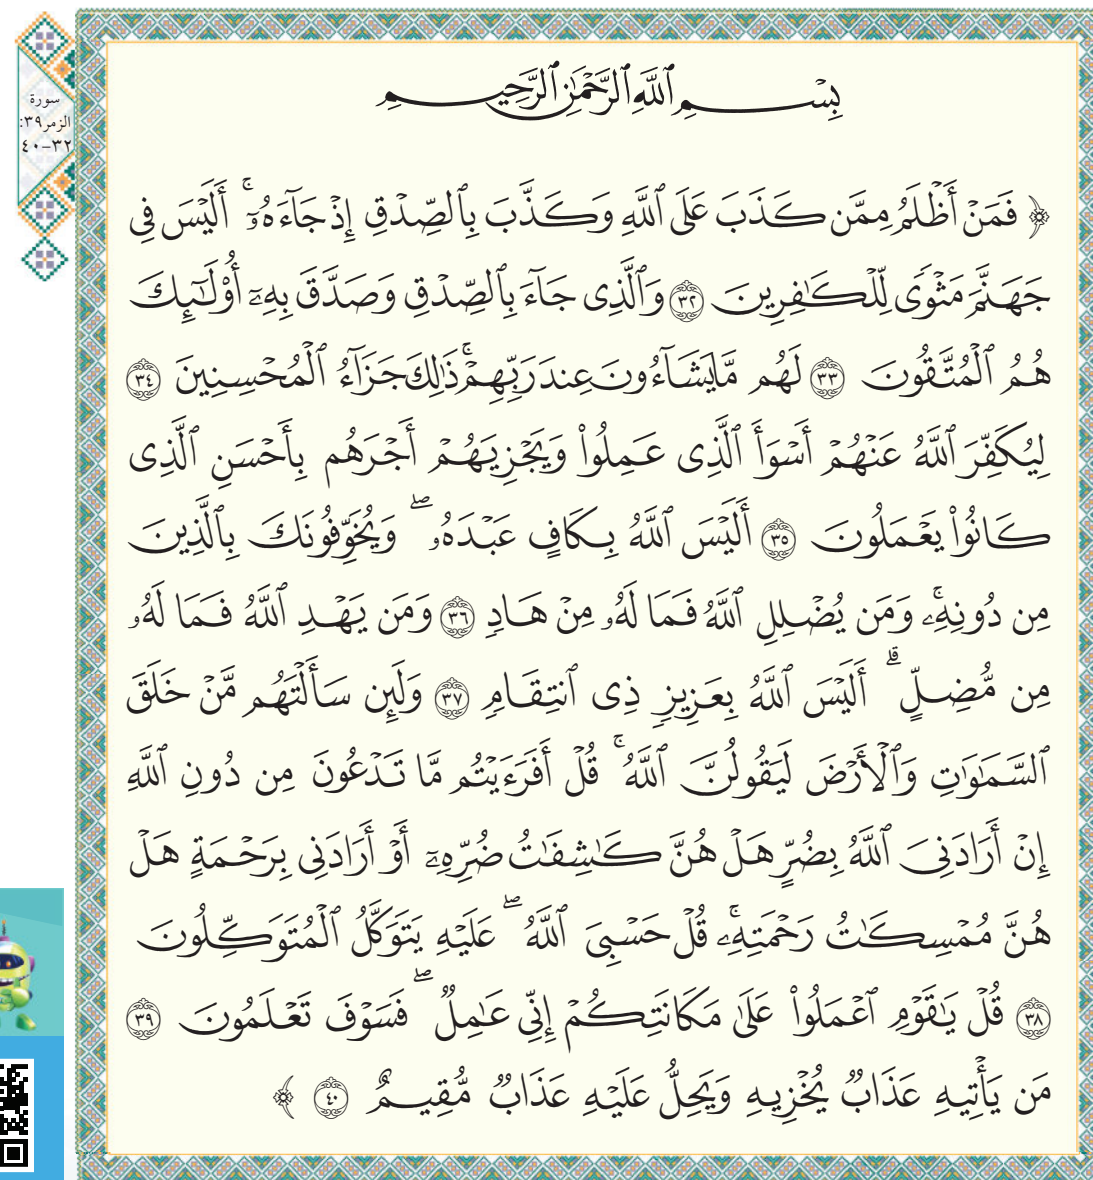 سورة
الزمر٣٩:
٣٢-٤٠
بِسْمِ ٱللَّهِ ٱلرَّحْمَٰنِ ٱلرَّحِيمِ
﴿ فَمَنْ أَظْلَمُ مِمَّن كَذَبَ عَلَى ٱللَّهِ وَكَذَّبَ بِٱلصِّدْقِ إِذْ جَآءَهُۥٓ ۚ أَلَيْسَ فِى
جَهَنَّمَ مَثْوًى لِّلْكَٰفِرِينَ ٣٢ وَٱلَّذِى جَآءَ بِٱلصِّدْقِ وَصَدَّقَ بِهِۦٓ أُو۟لَٰٓئِكَ
هُمُ ٱلْمُتَّقُونَ ٣٣ لَهُم مَّا يَشَآءُونَ عِندَ رَبِّهِمْ ۚ ذَٰلِكَ جَزَآءُ ٱلْمُحْسِنِينَ ٣٤
لِيُكَفِّرَ ٱللَّهُ عَنْهُمْ أَسْوَأَ ٱلَّذِى عَمِلُوا۟ وَيَجْزِيَهُمْ أَجْرَهُم بِأَحْسَنِ ٱلَّذِى
كَانُوا۟ يَعْمَلُونَ ٣٥ أَلَيْسَ ٱللَّهُ بِكَافٍ عَبْدَهُۥ ۖ وَيُخَوِّفُونَكَ بِٱلَّذِينَ
مِن دُونِهِۦ ۚ وَمَن يُضْلِلِ ٱللَّهُ فَمَا لَهُۥ مِنْ هَادٍ ٣٦ وَمَن يَهْدِ ٱللَّهُ فَمَا لَهُۥ
مِن مُّضِلٍّ ۗ أَلَيْسَ ٱللَّهُ بِعَزِيزٍ ذِى ٱنتِقَامٍ ٣٧ وَلَئِن سَأَلْتَهُم مَّنْ خَلَقَ
ٱلسَّمَٰوَٰتِ وَٱلْأَرْضَ لَيَقُولُنَّ ٱللَّهُ ۚ قُلْ أَفَرَءَيْتُم مَّا تَدْعُونَ مِن دُونِ ٱللَّهِ
إِنْ أَرَادَنِىَ ٱللَّهُ بِضُرٍّ هَلْ هُنَّ كَٰشِفَٰتُ ضُرِّهِۦٓ أَوْ أَرَادَنِى بِرَحْمَةٍ هَلْ
هُنَّ مُمْسِكَٰتُ رَحْمَتِهِۦ ۚ قُلْ حَسْبِىَ ٱللَّهُ ۖ عَلَيْهِ يَتَوَكَّلُ ٱلْمُتَوَكِّلُونَ
٣٨ قُلْ يَٰقَوْمِ ٱعْمَلُوا۟ عَلَىٰ مَكَانَتِكُمْ إِنِّى عَٰمِلٌ ۖ فَسَوْفَ تَعْلَمُونَ ٣٩
مَن يَأْتِيهِ عَذَابٌ يُخْزِيهِ وَيَحِلُّ عَلَيْهِ عَذَابٌ مُّقِيمٌ ٤٠ ﴾